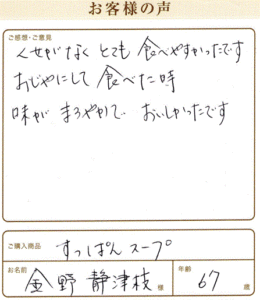 お客様の声
ご感想・ご意見
くせがなく とても 食べやすかったです
おじやにして 食べた時
味が まろやかで おいしかったです
ご購入商品
すっぽんスープ
お名前
金野 静津枝 様
年齢
67 歳